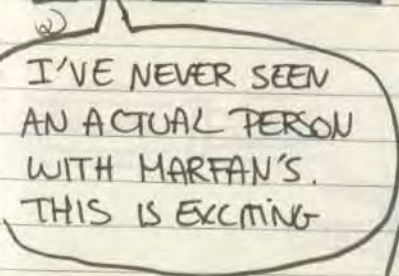 2)
I'VE NEVER SEEN
AN ACTUAL PERSON
WITH MARFAN'S.
THIS IS EXCITING